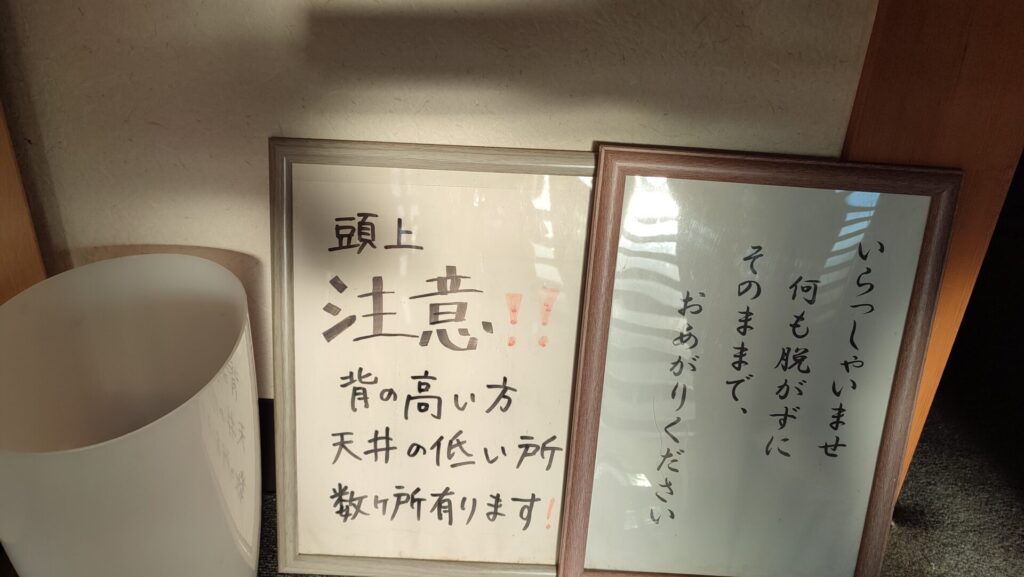 頭上
注意!!
背の高い方
天井の低い所
数ヶ所有ります!
いらっしゃいませ
何も脱がずに
そのままで、
おあがりください